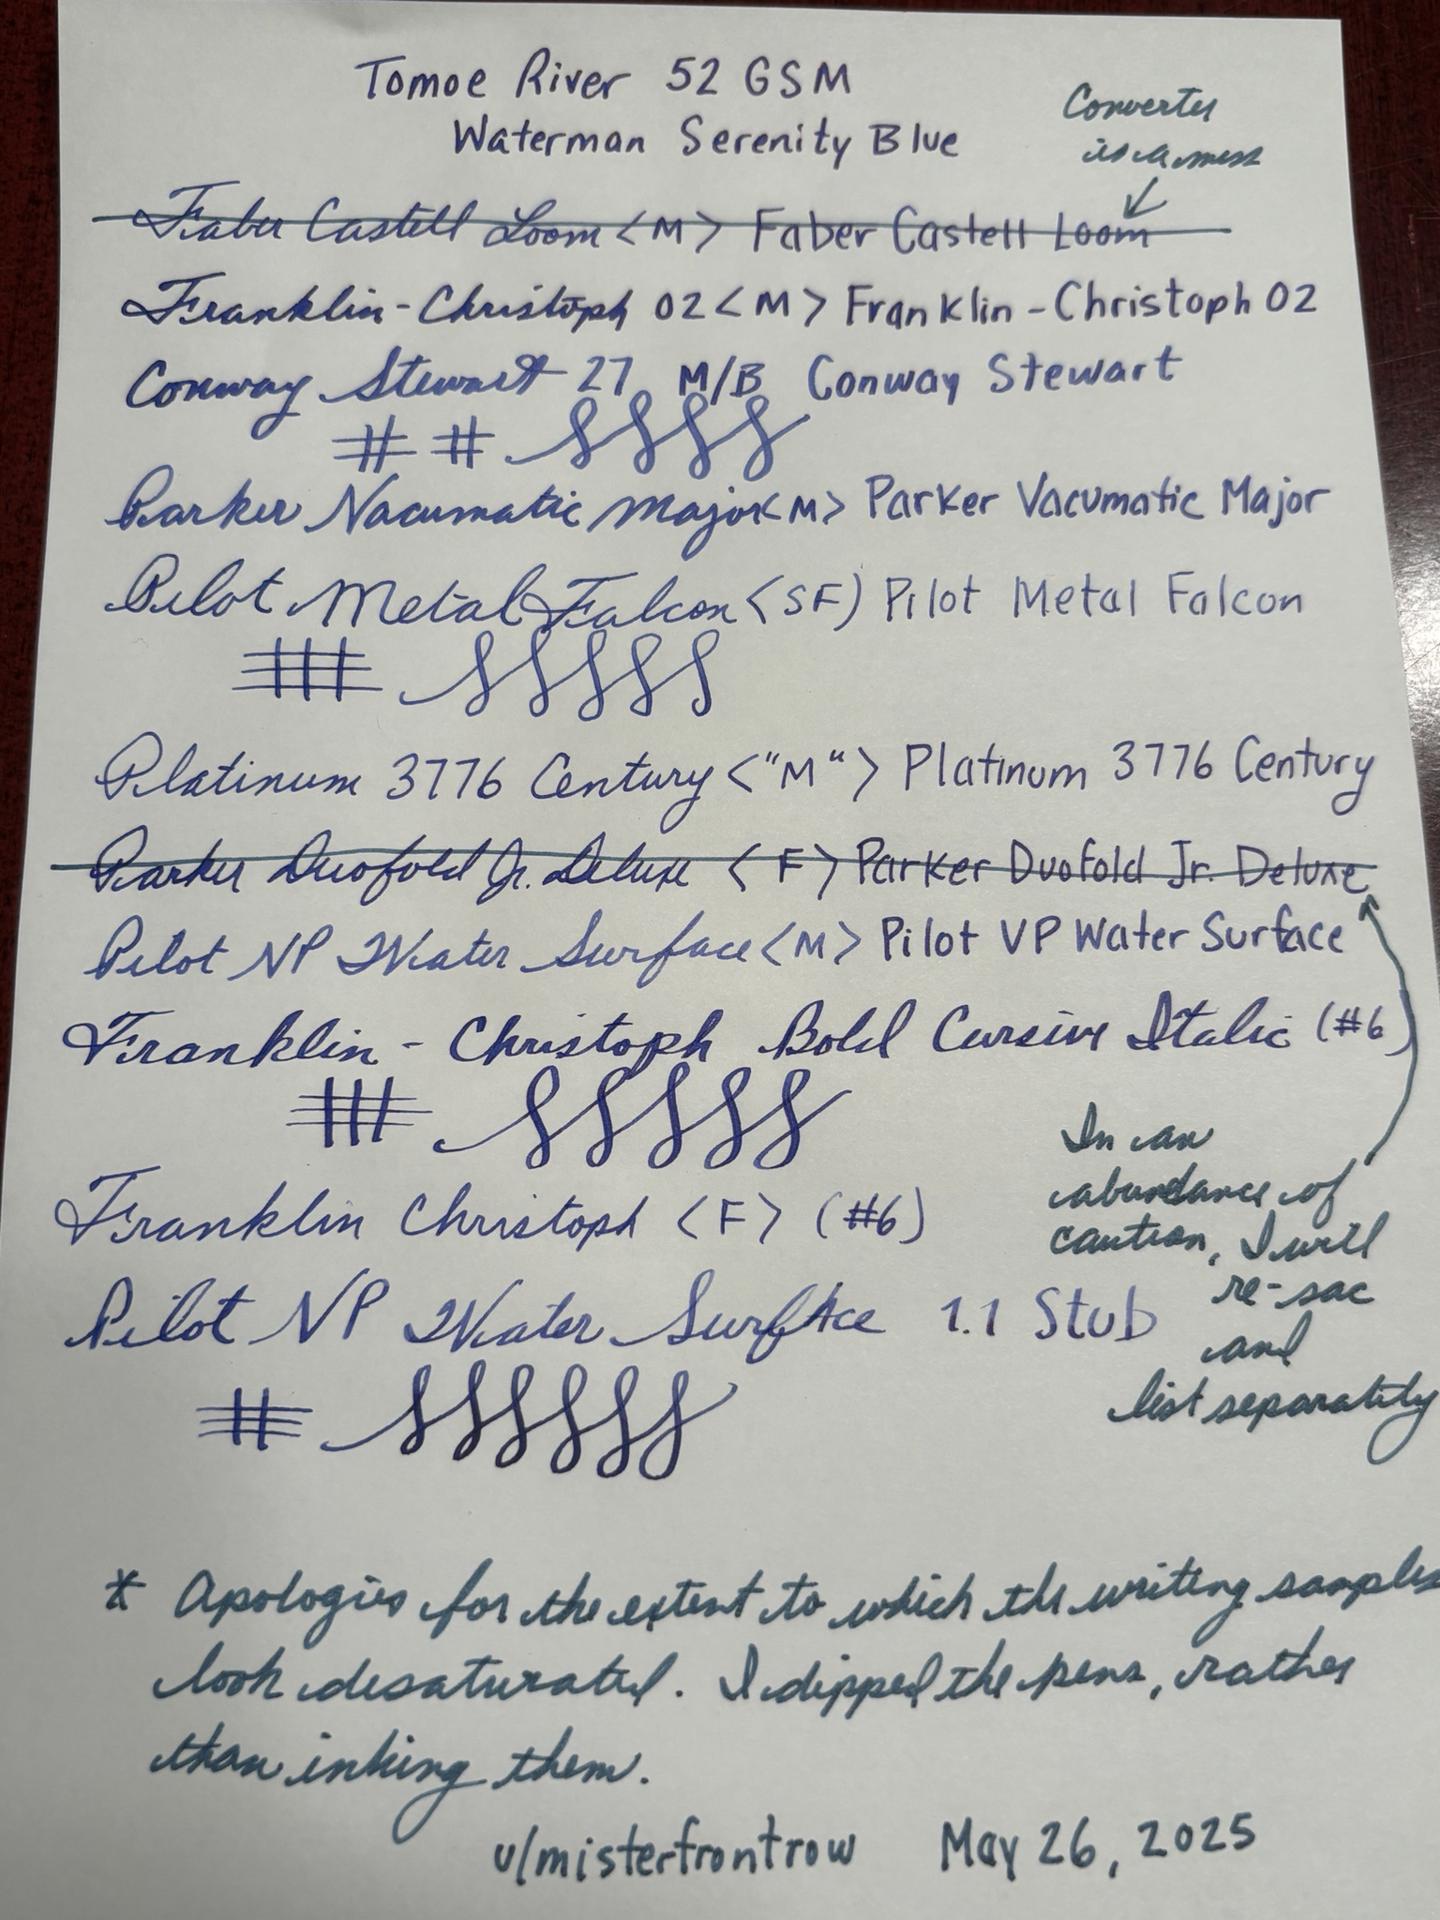 Tomoe River 52 GSM
Waterman Serenity Blue
Converter
is a mess
Faber Castell Loom <M> Faber Castell Loom
Franklin-Christoph 02 <M> Franklin-Christoph 02
Conway Stewart 27 M/B Conway Stewart
Parker Vacumatic Major <M> Parker Vacumatic Major
Pilot Metal Falcon <SF) Pilot Metal Falcon
Platinum 3776 Century <"M"> Platinum 3776 Century
Parker Duofold Jr. Deluxe <F> Parker Duofold Jr. Deluxe
Pilot VP Water Surface <M> Pilot VP Water Surface
Franklin-Christoph Bold Cursive Italic (#6)
Franklin Christoph <F> (#6)
Pilot VP Water Surface 1.1 Stub
In an
abundance of
caution, I will
re-sac
and
list separately
* Apologies for the extent to which the writing samples
look desaturated. I dipped the pens, rather
than inking them.
u/misterfrontrow May 26, 2025